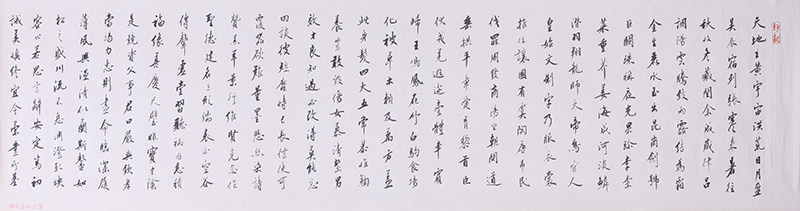 天地玄黄宇宙洪荒日月盈
昃辰宿列張寒来暑往
秋收冬藏閏餘成歲律吕
調陽雲騰致雨露结為霜
金生麗水玉出昆岡劍號
巨闕珠稱夜光果珍李柰
菜重芥薑海鹹河淡鱗
潜羽翔龍師火帝鳥官人
皇始制文字乃服衣裳
推位讓國有虞陶唐弔民
伐罪周發商湯坐朝問道
垂拱平章愛育黎首臣
伏戎羌遐迩壹體率賓
歸王鳴鳳在竹白駒食場
化被草木賴及萬方盖
此身髮四大五常恭惟鞠
養豈敢毁傷女慕貞潔男
效才良知過必改得莫能忘
罔談彼短靡恃己長信使可
覆器欲難量墨悲絲染詩
贊羔羊景行維賢克念作
聖德建名立形端表正空谷
傳聲虚堂習聽禍因惡積
福缘善慶尺璧非寶寸陰
是競資父事君曰嚴與敬孝
當竭力忠則盡命臨深履
薄夙興温凊似蘭斯馨如
松之盛川流不息淵澄取映
容止若思言辭安定篤初
誠美慎终宜令榮業所基